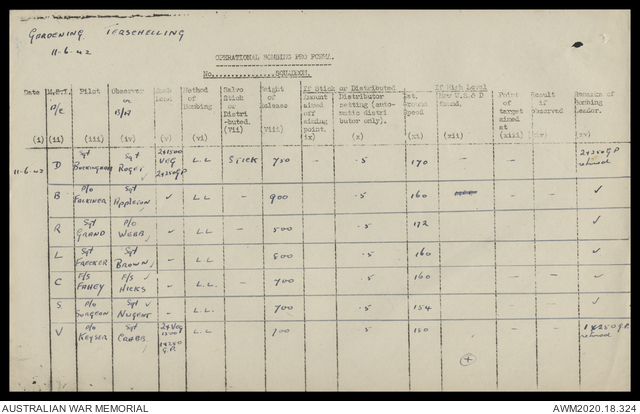 GARDENING TERSCHELLING
11-6-42
OPERATIONAL BOMBING PRO FORMA.
No. SQUADRON.
Date (i) | A/C (ii) | Pilot (iii) | Observer or B/A (iv) | Bomb Load (v) | Method of Bombing (vi) | Salvo Stick or Distributed. (Vii) | Height of Release Viii) | If Stick or Distributed Amount aimed off aiming point. ix) | Distributor setting (automatic distributor only). (x) | Est. Ground Speed (xi) | If High Level found. (xii) | Point of target aimed at (xiii) | Result if observed | Remarks of Bombing Leader. (xv)
11-6-42 D Sgt BUCKINGHAM Sgt ROGET 2x1500 VEG 2x250 G.P L.L STICK 750 - .5 170 - - - 2x250 G.P returned
B P/o FALKINER Sgt APPLETON ✓ L.L - 900 .5 160 - - ✓
R Sgt GRAND P/o WEBB ✓ L.L - 500 .5 172 - - ✓
L Sgt FRECKER Sgt BROWN ✓ L.L - 800 .5 160 - - ✓
C F/S FAHEY F/S HICKS ✓ L.L. - 700 .5 160 - ✓
S P/o SURGEON Sgt NUGENT ✓ L.L. 700 .5 154 - - ✓
V P/o KEYSER Sgt CRABB 2xVEG 1500 1x250 G.P. L.L 700 5 150 - - 1x250 G.P returned
AUSTRALIAN WAR MEMORIAL
AWM2020.18.324